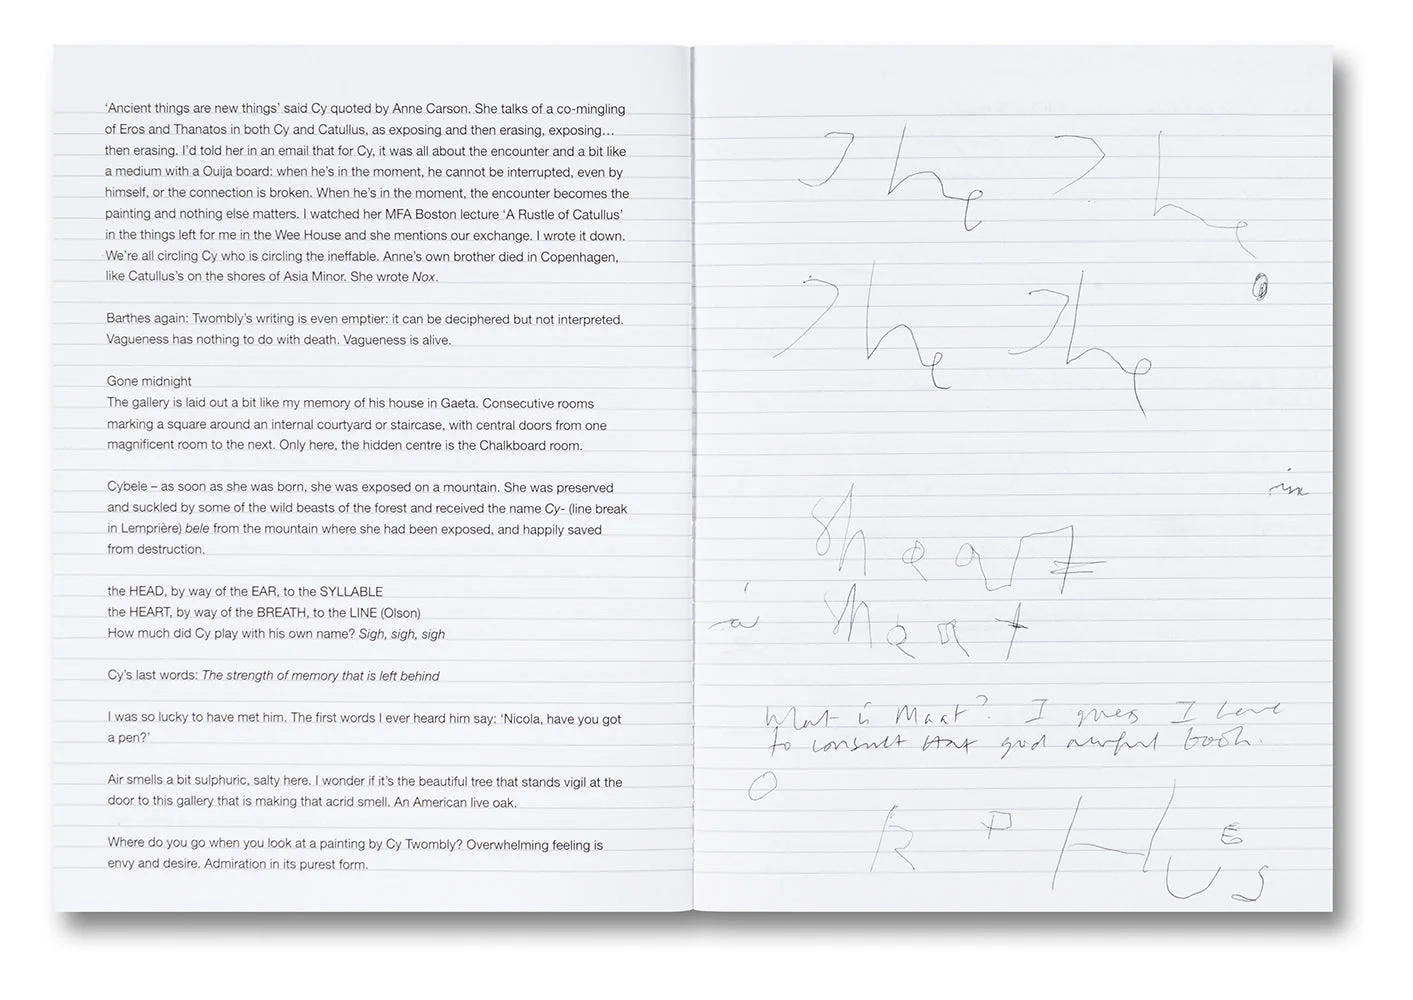 ‘Ancient things are new things’ said Cy quoted by Anne Carson. She talks of a co-mingling
of Eros and Thanatos in both Cy and Catullus, as exposing and then erasing, exposing…
then erasing. I’d told her in an email that for Cy, it was all about the encounter and a bit like
a medium with a Ouija board: when he’s in the moment, he cannot be interrupted, even by
himself, or the connection is broken. When he’s in the moment, the encounter becomes the
painting and nothing else matters. I watched her MFA Boston lecture ‘A Rustle of Catullus’
in the things left for me in the Wee House and she mentions our exchange. I wrote it down.
We’re all circling Cy who is circling the ineffable. Anne’s own brother died in Copenhagen,
like Catullus’s on the shores of Asia Minor. She wrote Nox.
Barthes again: Twombly’s writing is even emptier: it can be deciphered but not interpreted.
Vagueness has nothing to do with death. Vagueness is alive.
Gone midnight
The gallery is laid out a bit like my memory of his house in Gaeta. Consecutive rooms
marking a square around an internal courtyard or staircase, with central doors from one
magnificent room to the next. Only here, the hidden centre is the Chalkboard room.
Cybele – as soon as she was born, she was exposed on a mountain. She was preserved
and suckled by some of the wild beasts of the forest and received the name Cy- (line break
in Lemprière) bele from the mountain where she had been exposed, and happily saved
from destruction.
the HEAD, by way of the EAR, to the SYLLABLE
the HEART, by way of the BREATH, to the LINE (Olson)
How much did Cy play with his own name? Sigh, sigh, sigh
Cy’s last words: The strength of memory that is left behind
I was so lucky to have met him. The first words I ever heard him say: ‘Nicola, have you got
a pen?’
Air smells a bit sulphuric, salty here. I wonder if it’s the beautiful tree that stands vigil at the
door to this gallery that is making that acrid smell. An American live oak.
Where do you go when you look at a painting by Cy Twombly? Overwhelming feeling is
envy and desire. Admiration in its purest form.
The The
The The
in
What is Maat? I guess I have
to consult that god awful book.
O R P H E U S